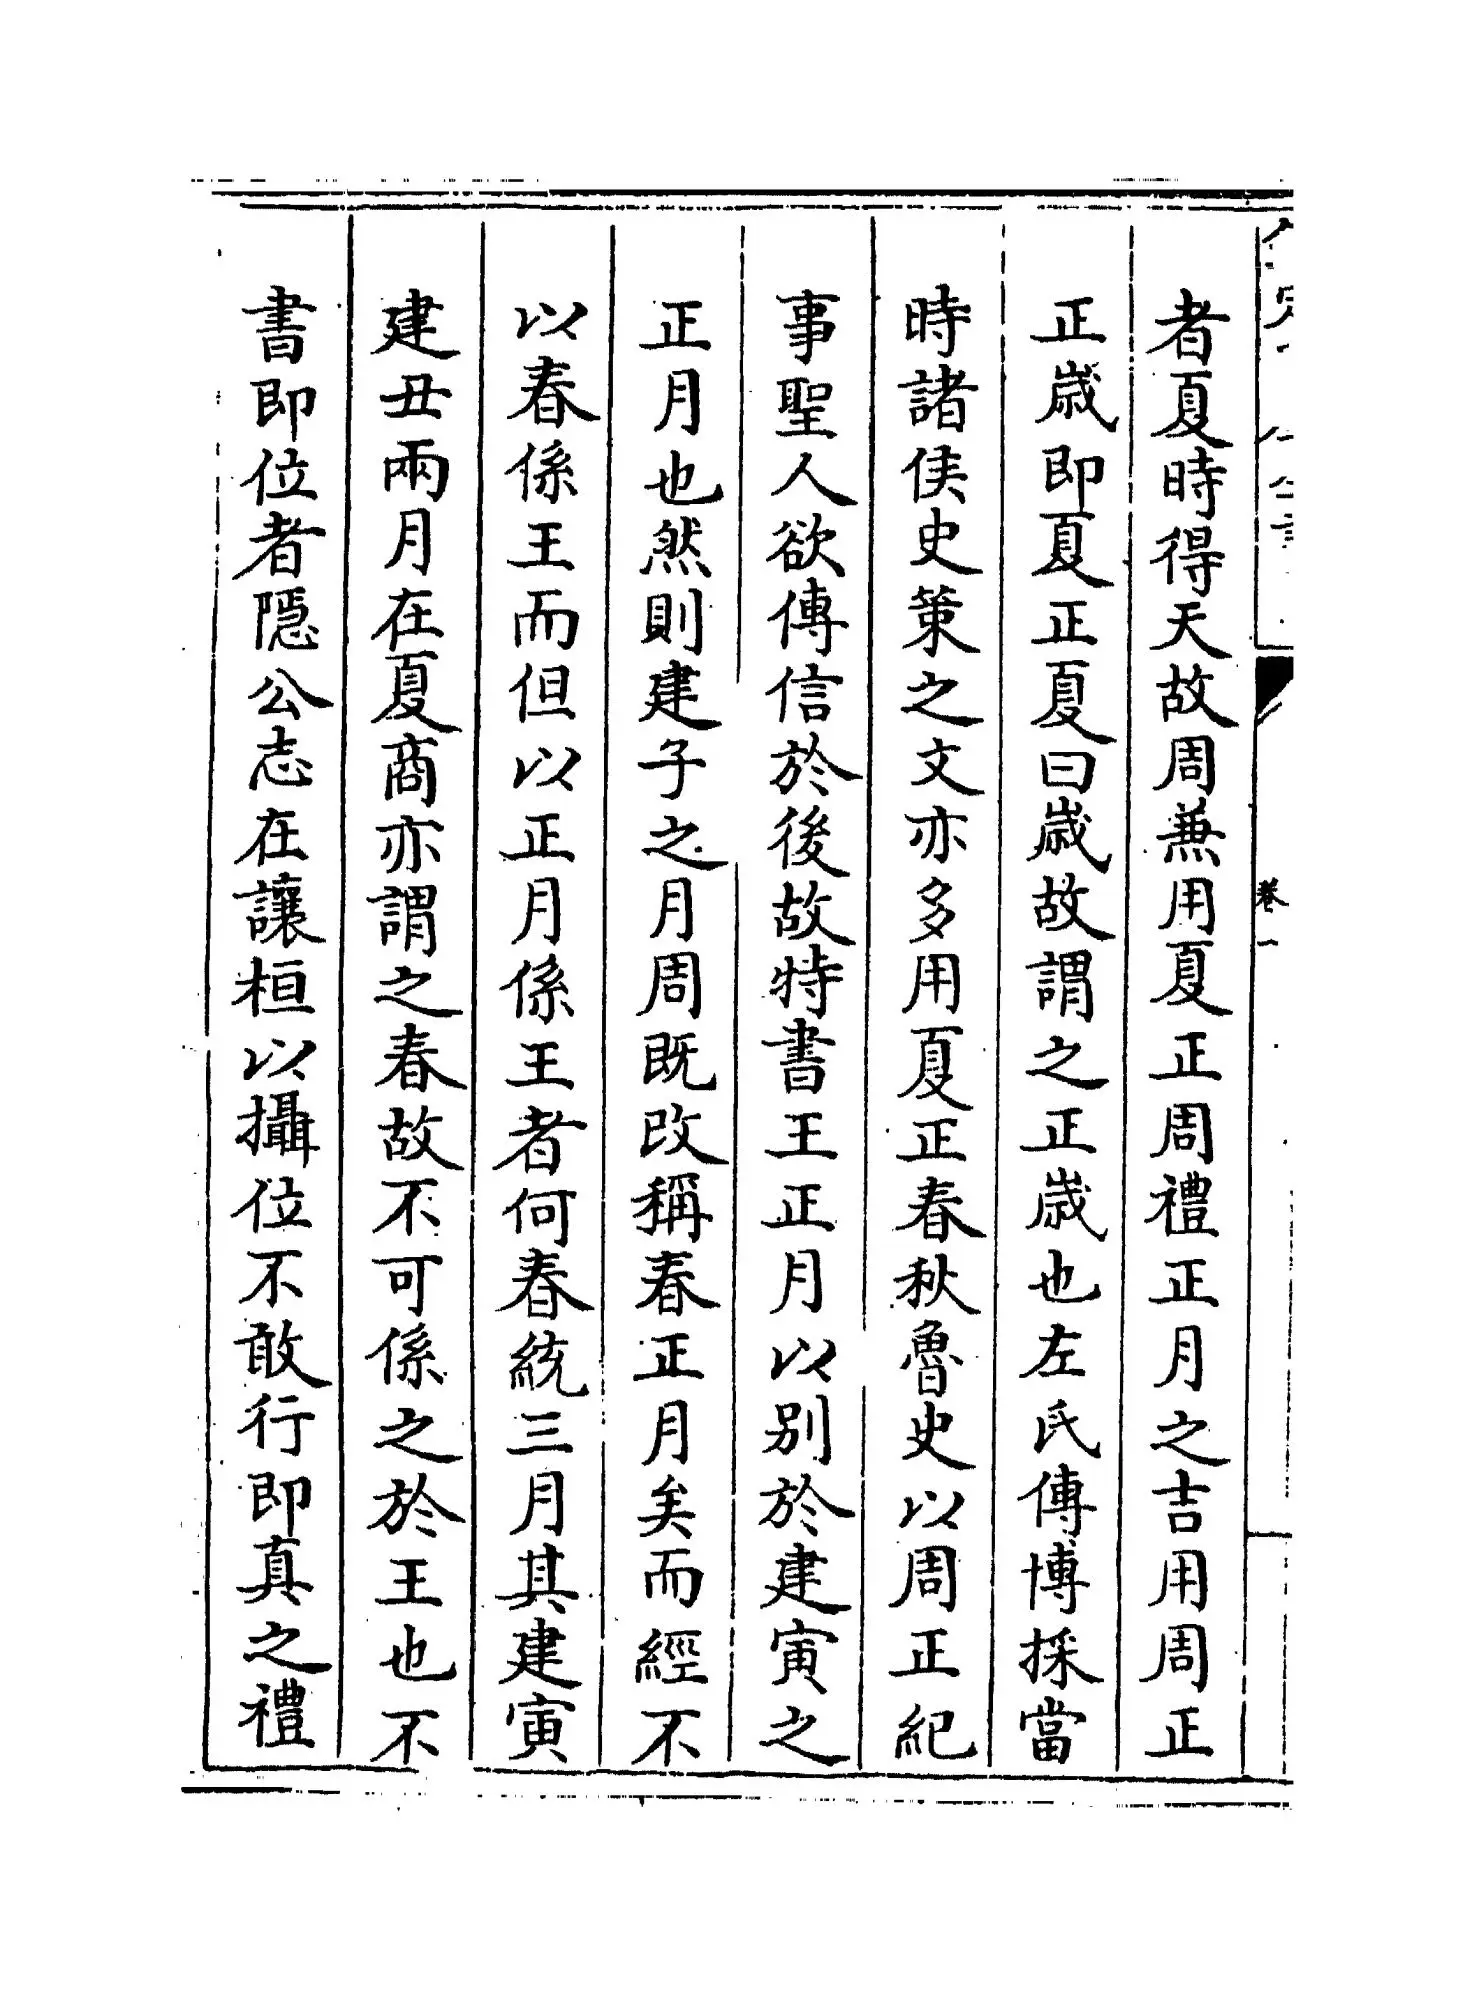 者夏時得天故周兼用夏正周禮正月之吉用周正
正歲即夏正夏曰歲故謂之正歲也左氏傳博採當
時諸侯史策之文亦多用夏正春秋魯史以周正紀
事聖人欲傳信於後故特書王正月以别於建寅之
正月也然則建子之月周既改稱春正月矣而經不
以春係王而但以正月係王者何春統三月其建寅
建丑兩月在夏商亦謂之春故不可係之於王也不
書即位者隱公志在讓桓以攝位不敢行即真之禮
卷一